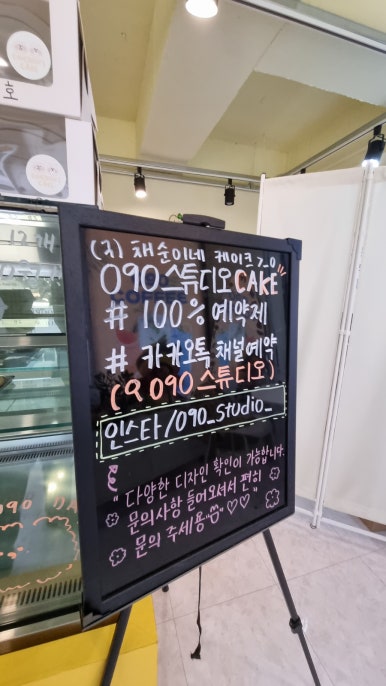 (구) 채순이네 케이크 2.0
090 스튜디오 CAKE
# 100% 예약제
# 카카오톡 채널예약
(Q 090 스튜디오)
인스타/090_studio_
" 다양한 디자인 확인이 가능합니다.
문의사항 들어오셔서 편히
문의 주세요 " ♡♡
090